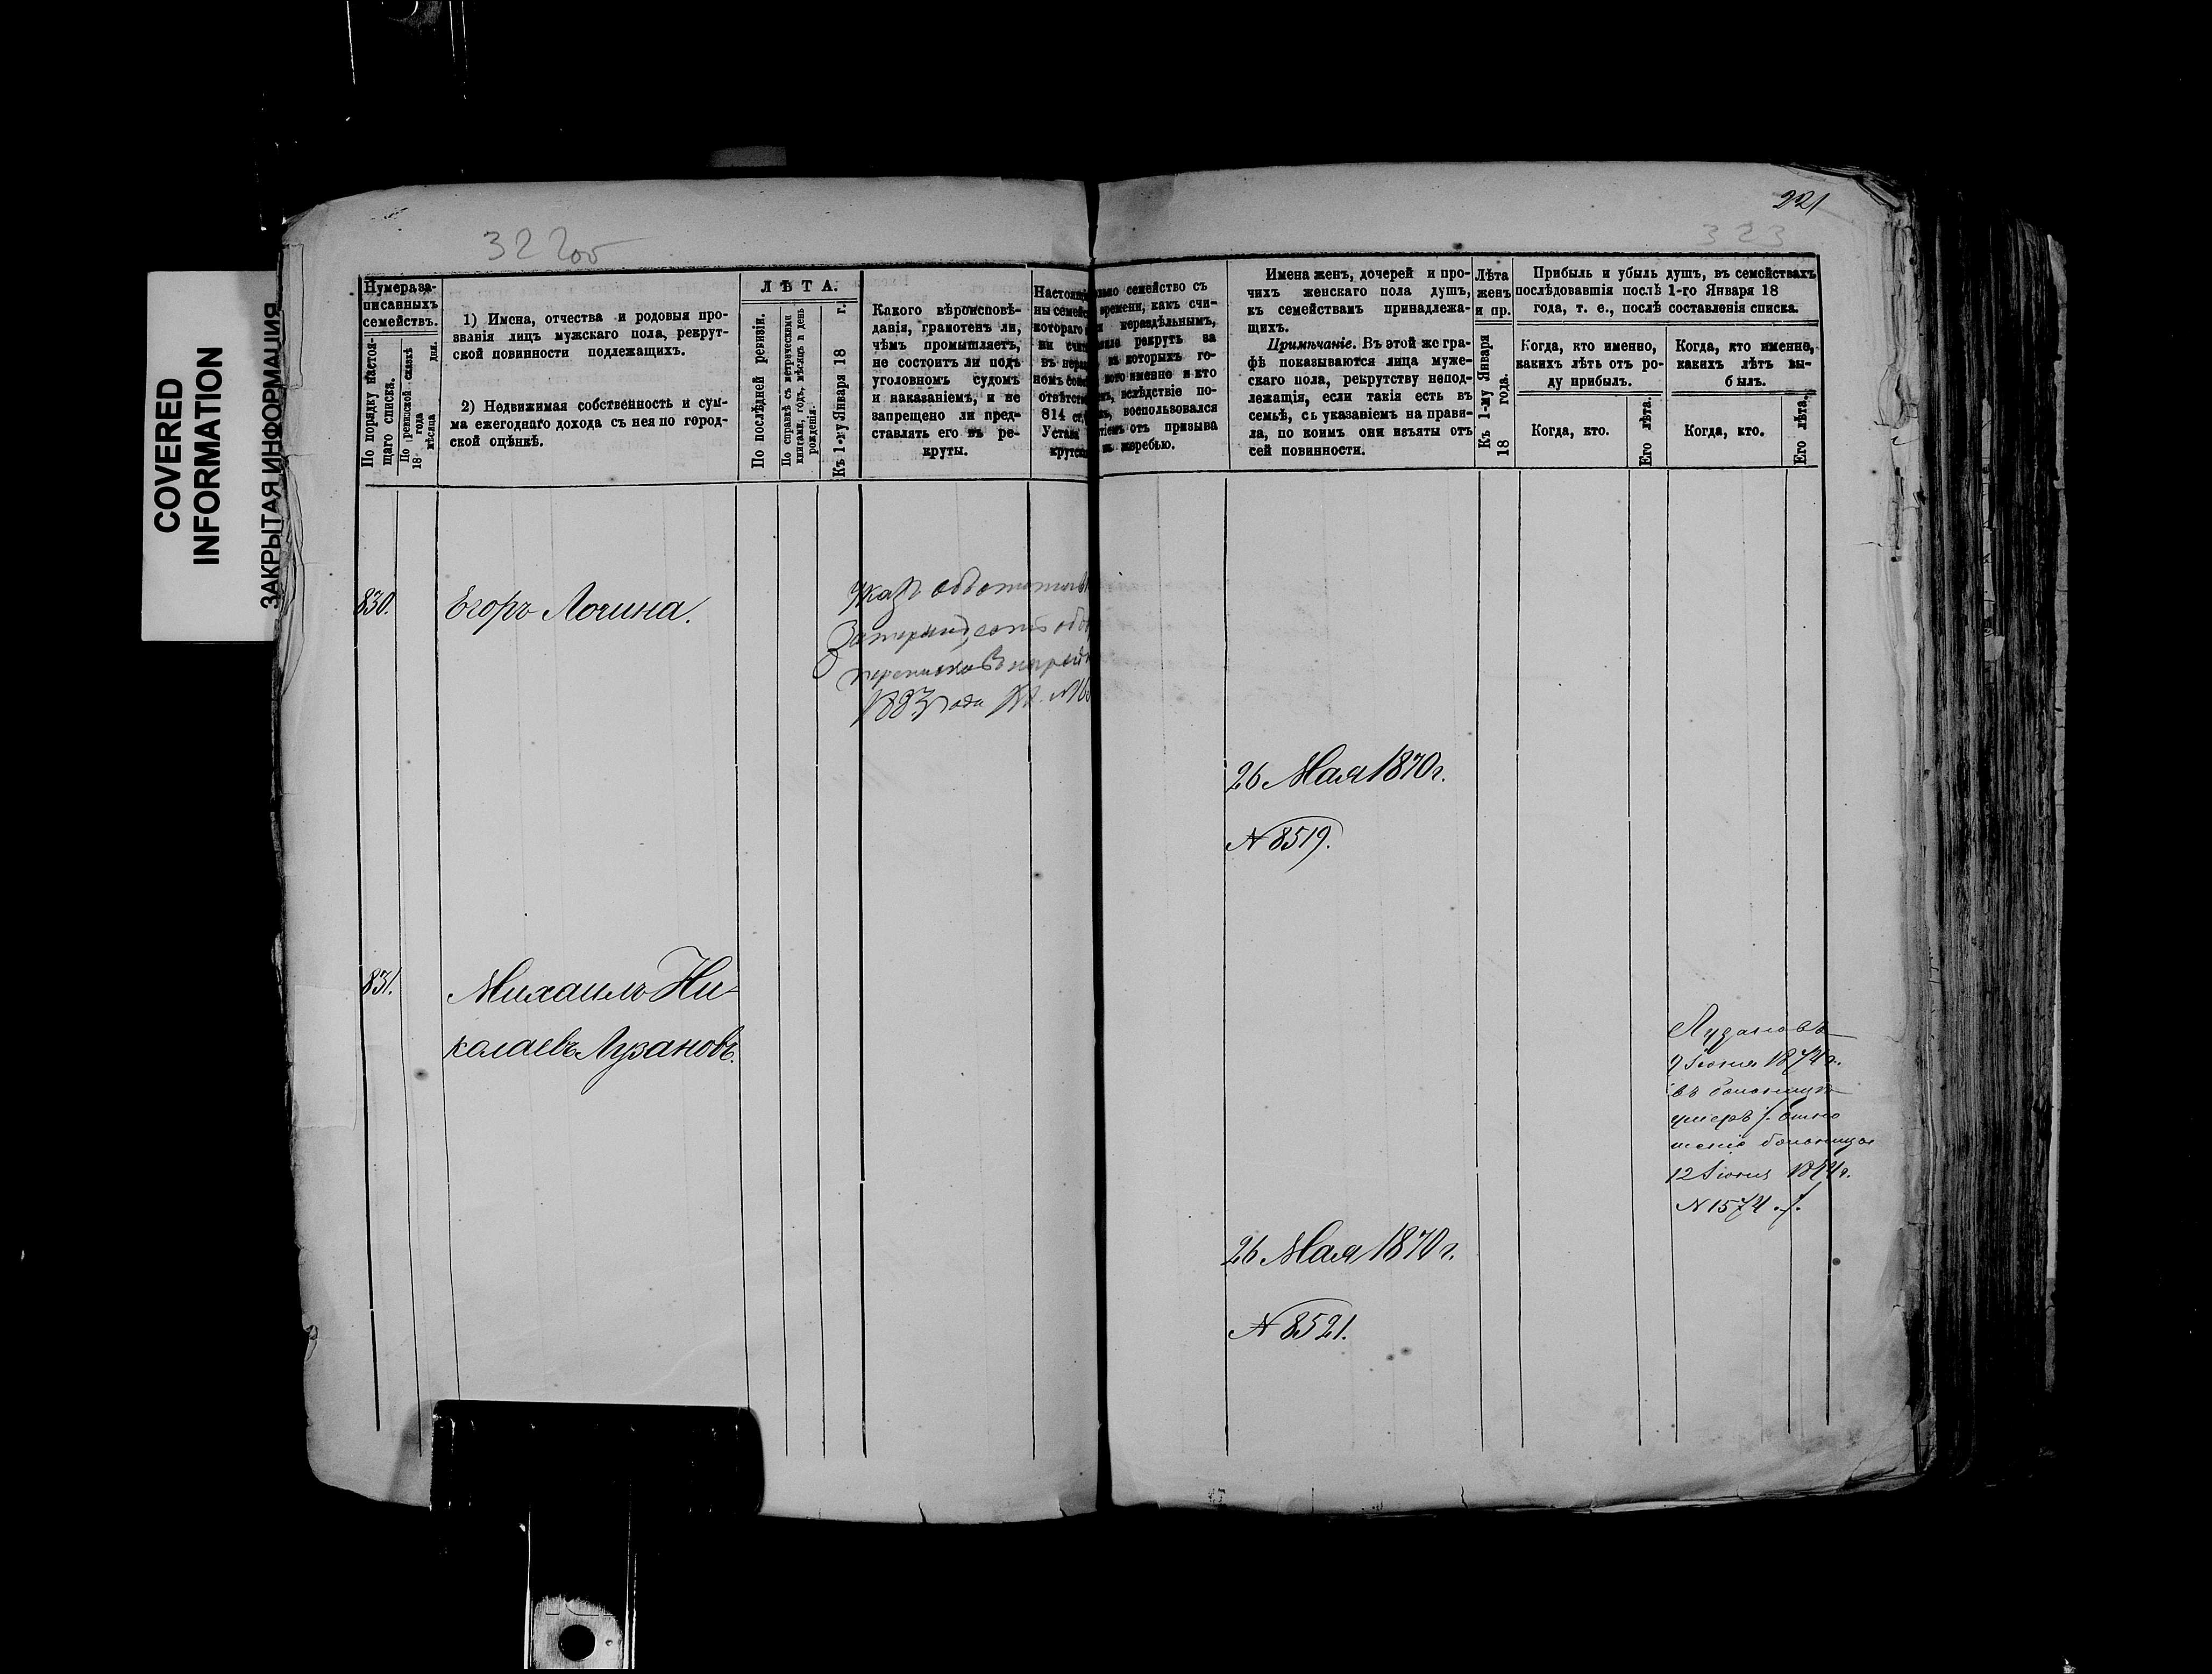 COVERED
INFORMATION
ЗАКРЫТАЯ ИНФОРМАЦИЯ
322об
221
323
Нумера за-
писанныхъ
семействъ.
По порядку настоя-
щаго списка.
По ревизской сказкѣ
18 года
мѣсяца дня.
1) Имена, отчества и родовыя про-
званія лицъ мужскаго пола, рекрут-
ской повинности подлежащихъ.
2) Недвижимая собственность и сум-
ма ежегоднаго дохода съ нея по город-
ской оцѣнкѣ.
ЛѢТА.
По послѣдней ревизіи.
По справкѣ съ метрическими
книгами, годъ, мѣсяцъ и день
рожденія.
Къ 1-му Января 18 г.
Какого вѣроисповѣ-
данія, грамотенъ ли,
чѣмъ промышляетъ,
не состоитъ ли подъ
уголовномъ судомъ
и наказаніемъ, и не
запрещено ли пред-
ставлять его въ ре-
круты.
но семейство съ
времени, какъ счи-
нераздѣльнымъ,
рекрутъ за
въ которыхъ го-
кого именно и кто
вслѣдствіе по-
воспользовался
отъ призыва
жеребью.
Имена женъ, дочерей и про-
чихъ женскаго пола душъ,
къ семействамъ принадлежа-
щихъ.
Примѣчаніе. Въ этой же гра-
фѣ показываются лица муже-
скаго пола, рекрутству непод-
лежащія, если такія есть въ
семьѣ, съ указаніемъ на прави-
ла, по коимъ они изъяты отъ
сей повинности.
Лѣта
женъ
и пр.
Къ 1-му Января
18 года.
Прибыль и убыль душъ, въ семействахъ
послѣдовавшія послѣ 1-го Января 18
года, т. е., послѣ составленія списка.
Когда, кто именно,
какихъ лѣтъ отъ ро-
ду прибылъ.
Когда, кто.
Его лѣта.
Когда, кто именно,
какихъ лѣтъ вы-
былъ.
Когда, кто.
Его лѣта.
830.
Егоръ Логина.
1883 года
26 Мая 1870 г.
N 8519.
831.
Михаилъ Ни-
колаевъ Лузановъ.
Лузановъ
9 Іюня 1874 г.
въ больницѣ
умеръ /. отно
шеніе больницы
12 Іюня 1874 г.
N 1574 ./.
26 Мая 1870 г.
N 8521.